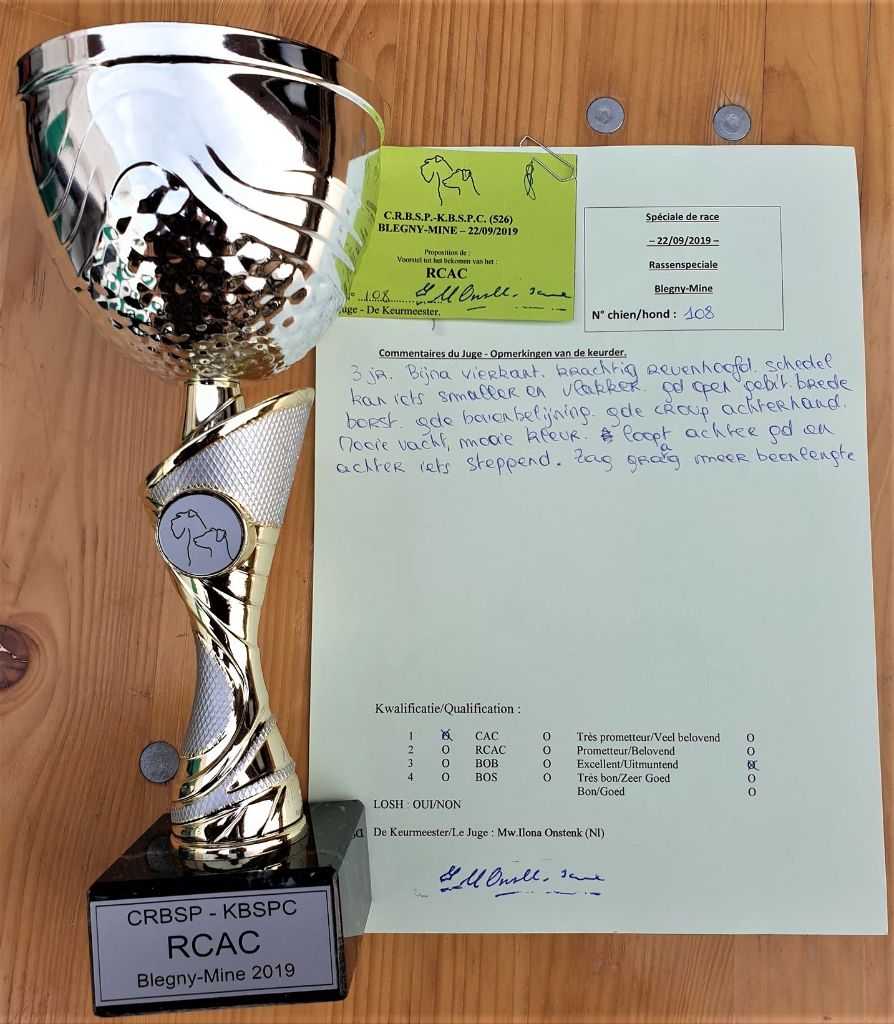 C.R.B.S.P.-K.B.S.P.C. (526)
BLEGNY-MINE – 22/09/2019
Proposition de :
Voorstel tot het bekomen van het :
RCAC
N° 108
Juge - De Keurmeester.
Spéciale de race
– 22/09/2019 –
Rassenspeciale
Blegny-Mine
N° chien/hond : 108
Commentaires du Juge - Opmerkingen van de keurder.
3 jr. Bijna vierkant. krachtig revenhoofd. schedel
kan iets smaller en vlakker. gd open gebit. brede
borst. gde bovenbelijning. gde croup achterhand.
Mooie vacht, mooie kleur. loopt achter gd en
achter iets steppend. Zag graag meer beenlengte
Kwalificatie/Qualification :
1 O CAC O Très prometteur/Veel belovend O
2 O RCAC O Prometteur/Belovend O
3 O BOB O Excellent/Uitmuntend O
4 O BOS O Très bon/Zeer Goed O
Bon/Goed O
LOSH : OUI/NON
De Keurmeester/Le Juge : Mw.Ilona Onstenk (Nl)
CRBSP - KBSPC
RCAC
Blegny-Mine 2019